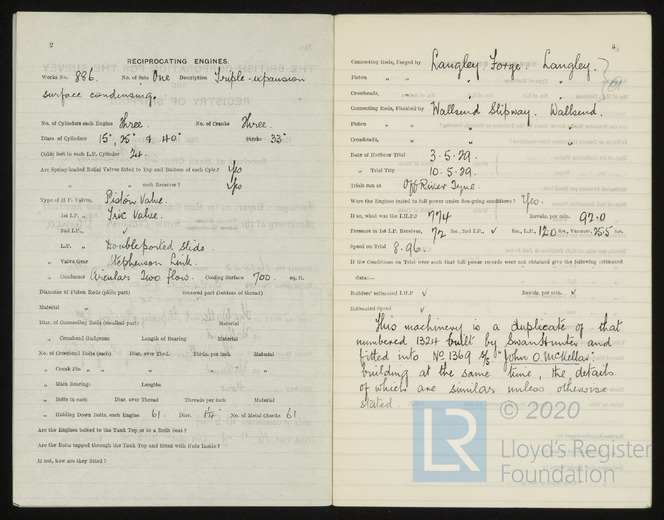 2
RECIPROCATING ENGINES.
Works No. 886. No. of Sets One Description Triple-expansion
surface condensing.
No. of Cylinders each Engine Three. No. of Cranks Three.
Diars of Cylinders 15", 25" & 40" Stroke 33"
Cubic feet in each L.P. Cylinder 24.
Are Spring-loaded Relief Valves fitted to Top and Bottom of each Cylr.? Yes
" " each Receiver? Yes
Type of H.P. Valves, Piston Valve.
" 1st I.P. "
" 2nd I.P. " ✓
" L.P. " Doubleported slide.
" Valve Gear Stephenson Link.
" Condenser Circular Two flow. Cooling Surface 700 sq. ft.
Diameter of Piston Rods (plain part) Screwed part (bottom of thread)
Material
Diar. of Connecting Rods (smallest part) Material
" Crosshead Gudgeons Length of Bearing Material
No. of Crosshead Bolts (each) Diar. over Thrd. Thrds. per inch Material
" Crank Pin " " " "
" Main Bearings Lengths
" Bolts in each Diar. over Thread Threads per inch Material
" Holding Down Bolts, each Engine 61. Diar. No. of Metal Chocks 61
Are the Engines bolted to the Tank Top or to a Built Seat?
Are the Bolts tapped through the Tank Top and fitted with Nuts Inside?
If not, how are they fitted?
3
Connecting Rods, Forged by Langley Forge. Langley.
Piston " " "
Crossheads, " "
Connecting Rods, Finished by Wallsend Slipway. Wallsend.
Piston " " "
Crossheads, " "
Date of Harbour Trial 3.5.29.
" Trial Trip 10.5.29.
Trials run at Off River Tyne.
Were the Engines tested to full power under Sea-going conditions? Yes.
If so, what was the I.H.P.? 774 Revols. per min. 92.0
Pressure in 1st I.P. Receiver, 72 lbs., 2nd I.P., ✓ lbs., L.P., 12.0 lbs., Vacuum, ins.
Speed on Trial 8.96.
If the Conditions on Trial were such that full power records were not obtained give the following estimated
data:—
Builders' estimated I.H.P. ✓ Revols. per min. ✓
Estimated Speed ✓
This machinery is a duplicate of that
numbered 1324 built by Swan Hunter and
fitted into No 1369 S/S "John O. McKellar"
building at the same time, the details
of which are similar unless otherwise
stated.
© 2020
LR
Lloyd's Register
Foundation